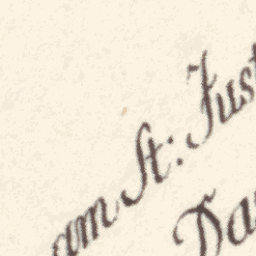 am St: Just
Da